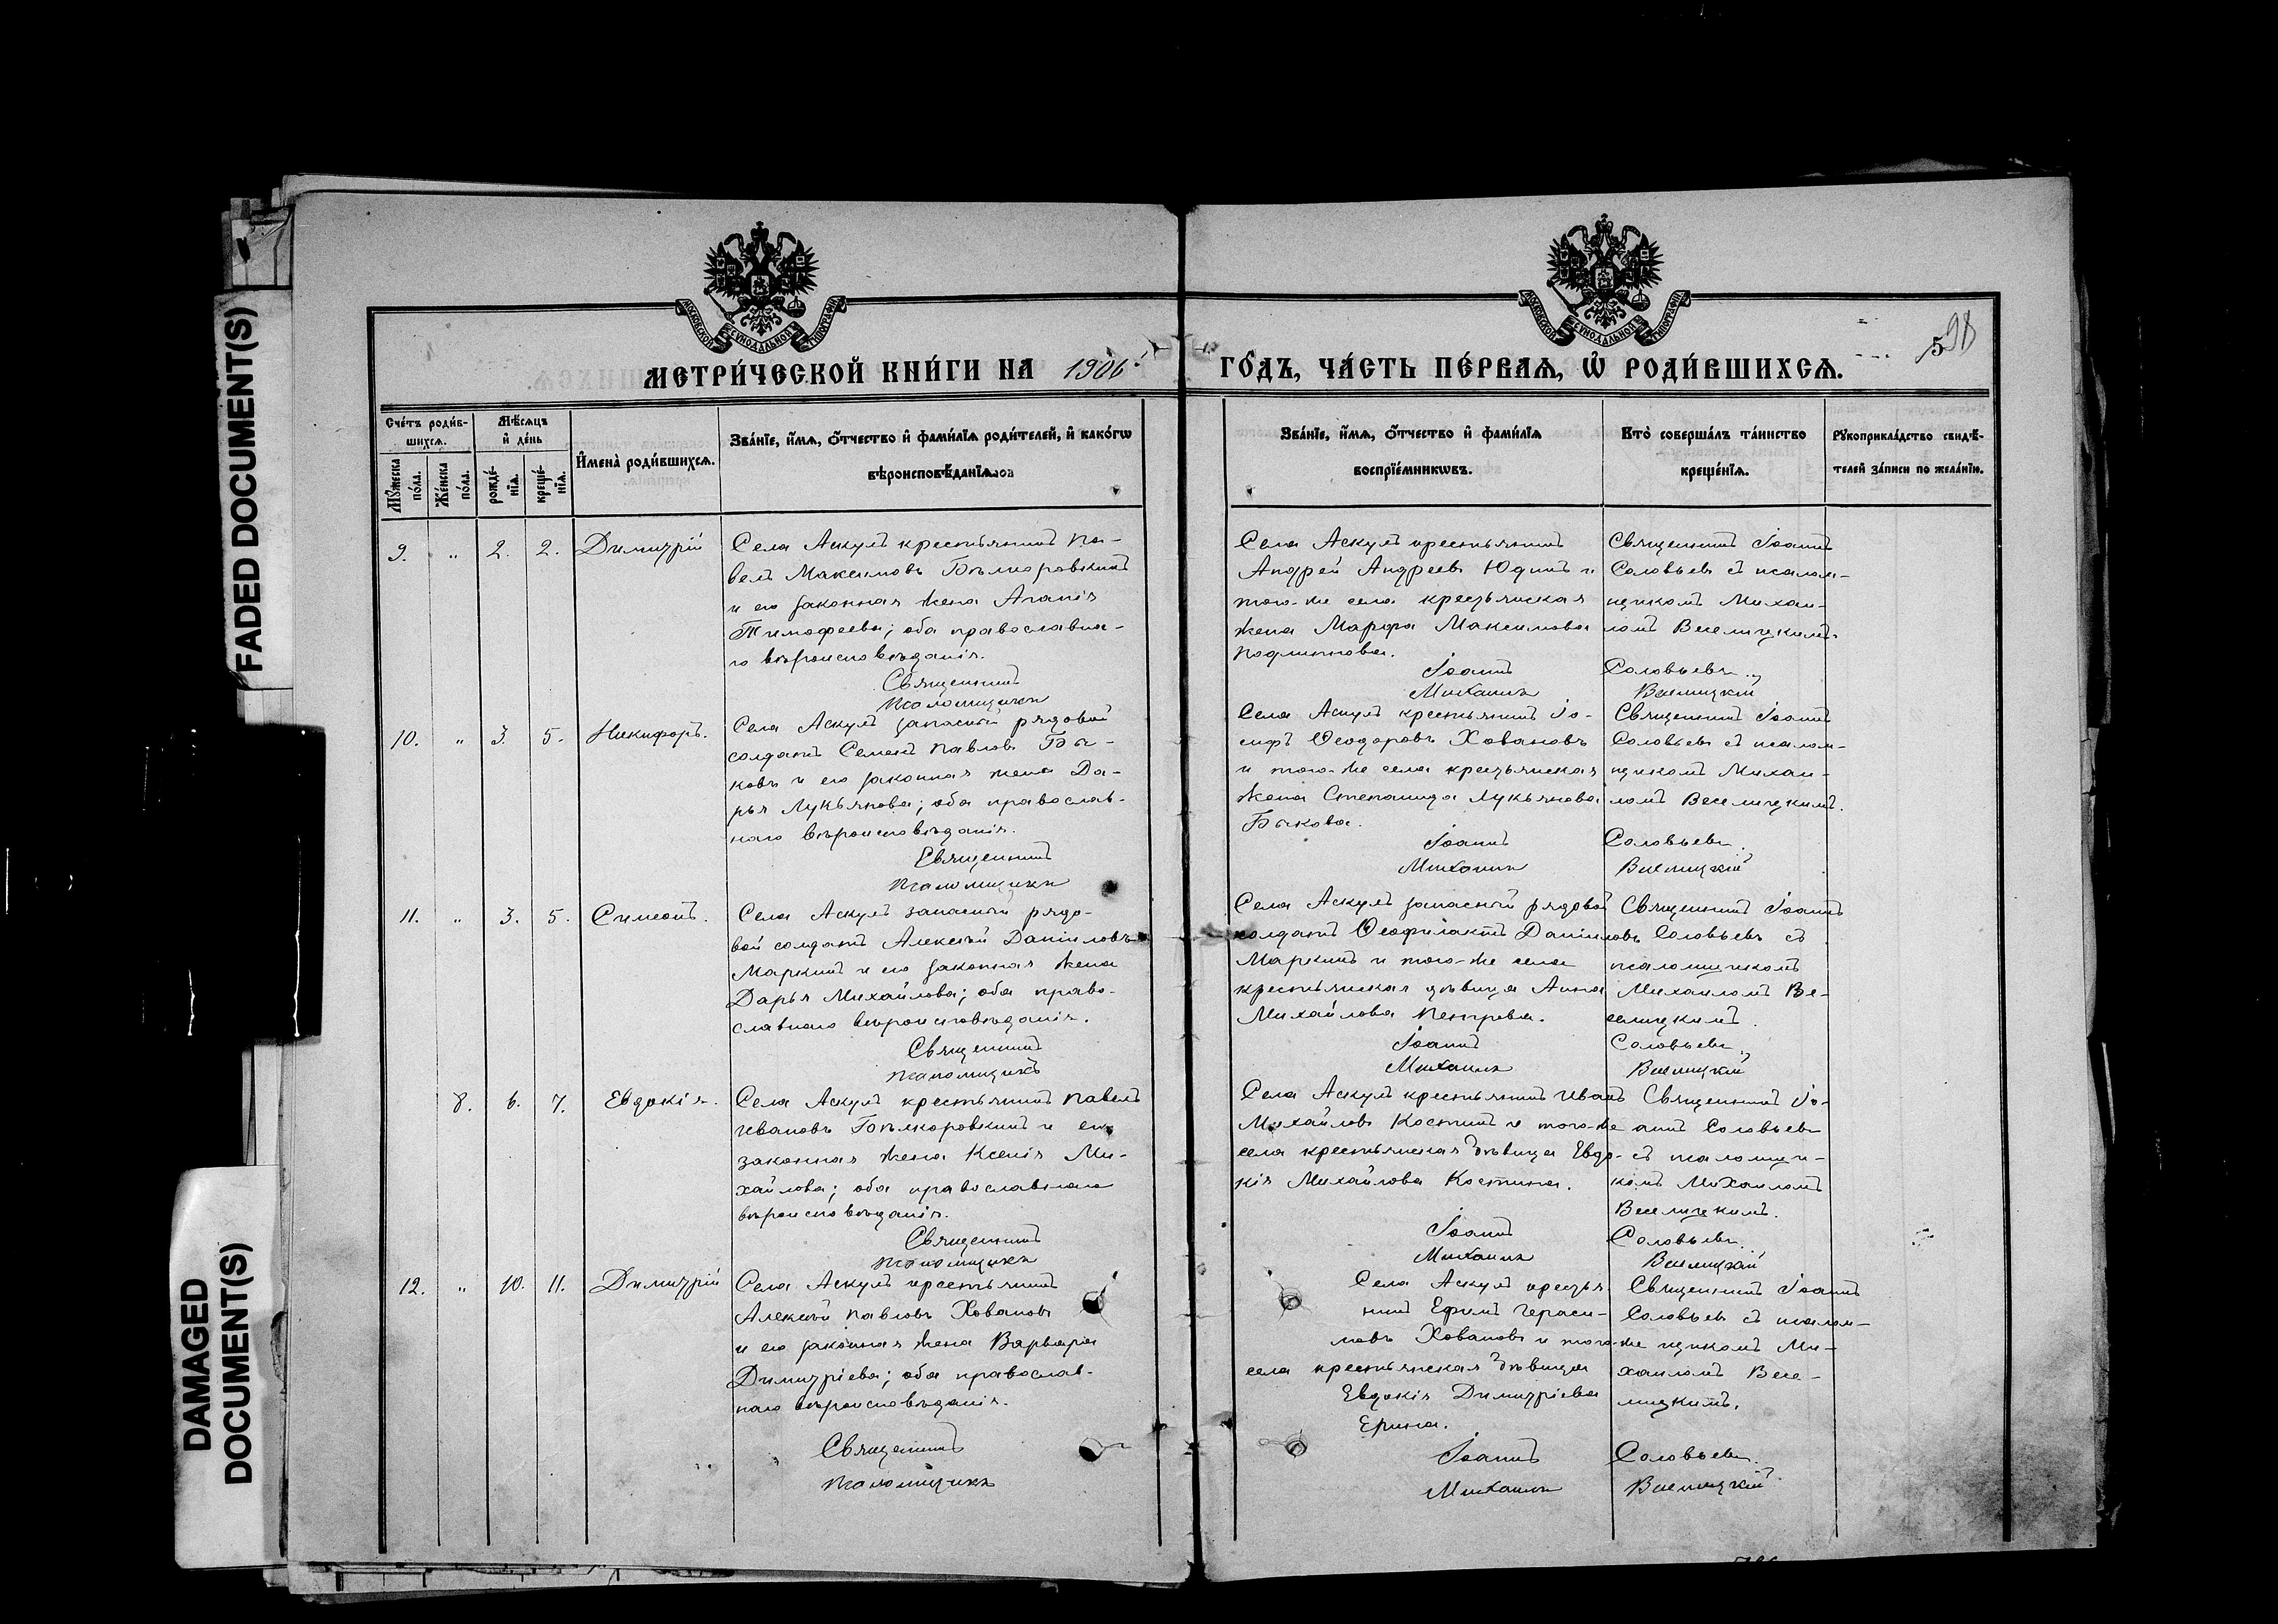 FADED DOCUMENT(S)
DAMAGED
DOCUMENT(S)
МОСКОВСКОЙ СѴНОДАЛЬНОЙ ТИПОГРАФІИ
МОСКОВСКОЙ СѴНОДАЛЬНОЙ ТИПОГРАФІИ
МЕТРИ́ЧЕСКОЙ КНИ́ГИ НА 1906
ГО́ДЪ, ЧА́СТЬ ПЕ́РВАѦ, Ѡ҆ РОДИ́ВШИХСѦ.
598
Сче́тъ роди́в-
шихсѧ.
Мꙋ́жеска
по́ла.
Же́нска
по́ла.
Мѣ́сѧцъ
и҆ де́нь
рожде́-
нїѧ.
креще́-
нїѧ.
И҆мена̀ роди́вшихсѧ.
Зва́нїе, и҆́мѧ, ѻ҆́тчество и҆ фами́лїѧ роди́телей, и҆ како́гѡ
вѣроисповѣ́данїѧ.
Зва́нїе, и҆́мѧ, ѻ҆́тчество и҆ фами́лїѧ
воспрїе́мникѡвъ.
Кто̀ соверша́лъ та́инство
креще́нїѧ.
Рꙋкоприкла́дство свидѣ́-
телей за́писи по жела́нїю.
9. „ 2. 2. Димитрій
Села Аскулъ крестьянинъ Па-
велъ Максимовъ Бѣлкоровскинъ
и его законная жена Агапія
Тимофеева; оба православна-
го вѣроисповѣданія.
Священникъ
Псаломщикъ
Села Аскулъ крестьянинъ
Андрей Андреевъ Юдинъ и
того-же села крестьянская
жена Марфа Максимова
Іоаннъ
Михаилъ
Священникъ Іоаннъ
Соловьевъ съ псалом-
щикомъ Михаи-
ломъ Веселицкимъ.
Соловьевъ.
Веселицкій
10. „ 3. 5. Никифоръ.
Села Аскулъ запасный рядовой
солдатъ Семенъ Павловъ Бы-
ковъ и его законная жена Да-
рья Лукьянова; оба православ-
наго вѣроисповѣданія.
Священникъ
Псаломщикъ
Села Аскулъ крестьянинъ Іо-
сифъ Ѳеодоровъ Ховановъ
и того-же села крестьянская
жена Степанида Лукьянова
Быкова.
Іоаннъ
Михаилъ
Священникъ Іоаннъ
Соловьевъ съ псалом-
щикомъ Михаи-
ломъ Веселицкимъ.
Соловьевъ.
Веселицкій
11. „ 3. 5. Симеонъ.
Села Аскулъ запасный рядо-
вой солдатъ Алексѣй Даніиловъ
Маркинъ и его законная жена
Дарья Михайлова; оба право-
славнаго вѣроисповѣданія.
Священникъ
Псаломщикъ
Села Аскулъ запасный рядовой
солдатъ Ѳеофилактъ Даніиловъ
Маркинъ и того-же села
крестьянская дѣвица Анна
Михайлова Петрова.
Іоаннъ
Михаилъ
Священникъ Іоаннъ
Соловьевъ съ
псаломщикомъ
Михаиломъ Ве-
селицкимъ.
Соловьевъ.
Веселицкій
8. 6. 7. Евдокія.
Села Аскулъ крестьянинъ Павелъ
Ивановъ Бѣлкоровскинъ и его
законная жена Ксенія Ми-
хайлова; оба православнаго
вѣроисповѣданія.
Священникъ
Псаломщикъ
Села Аскулъ крестьянинъ Иванъ
Михайловъ Костинъ и того-же
села крестьянская дѣвица Евдо-
кія Михайлова Костина.
Іоаннъ
Михаилъ
Священникъ Іо-
аннъ Соловьевъ
съ псаломщи-
комъ Михаиломъ
Веселицкимъ.
Соловьевъ.
Веселицкій
12. „ 10. 11. Димитрій
Села Аскулъ крестьянинъ
Алексѣй Павловъ Ховановъ
и его законная жена Варвара
Димитріева; оба православ-
наго вѣроисповѣданія.
Священникъ
Псаломщикъ
Села Аскулъ крестья-
нинъ Ефимъ Гераси-
мовъ Ховановъ и того-же
села крестьянская дѣвица
Евдокія Димитріева
Ерина.
Іоаннъ
Михаилъ
Священникъ Іоаннъ
Соловьевъ съ псалом-
щикомъ Ми-
хаиломъ Весе-
лицкимъ.
Соловьевъ.
Веселицкій